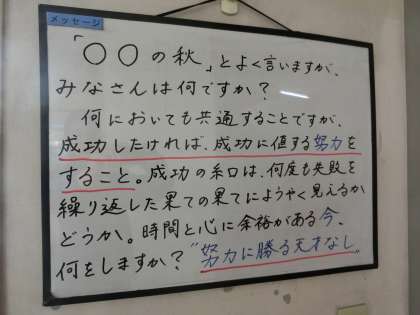 メッセージ
「〇〇の秋」とよく言いますが、
みなさんは何ですか？
何においても共通することですが、
成功したければ、成功に値する努力を
すること。成功の糸口は、何度も失敗を
繰り返した果ての果てにようやく見えるか
どうか。時間と心に余裕がある今、
何をしますか？"努力に勝る天才なし"